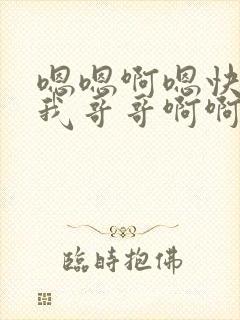 嗯嗯啊嗯快
我哥哥啊啊
臨時抱佛